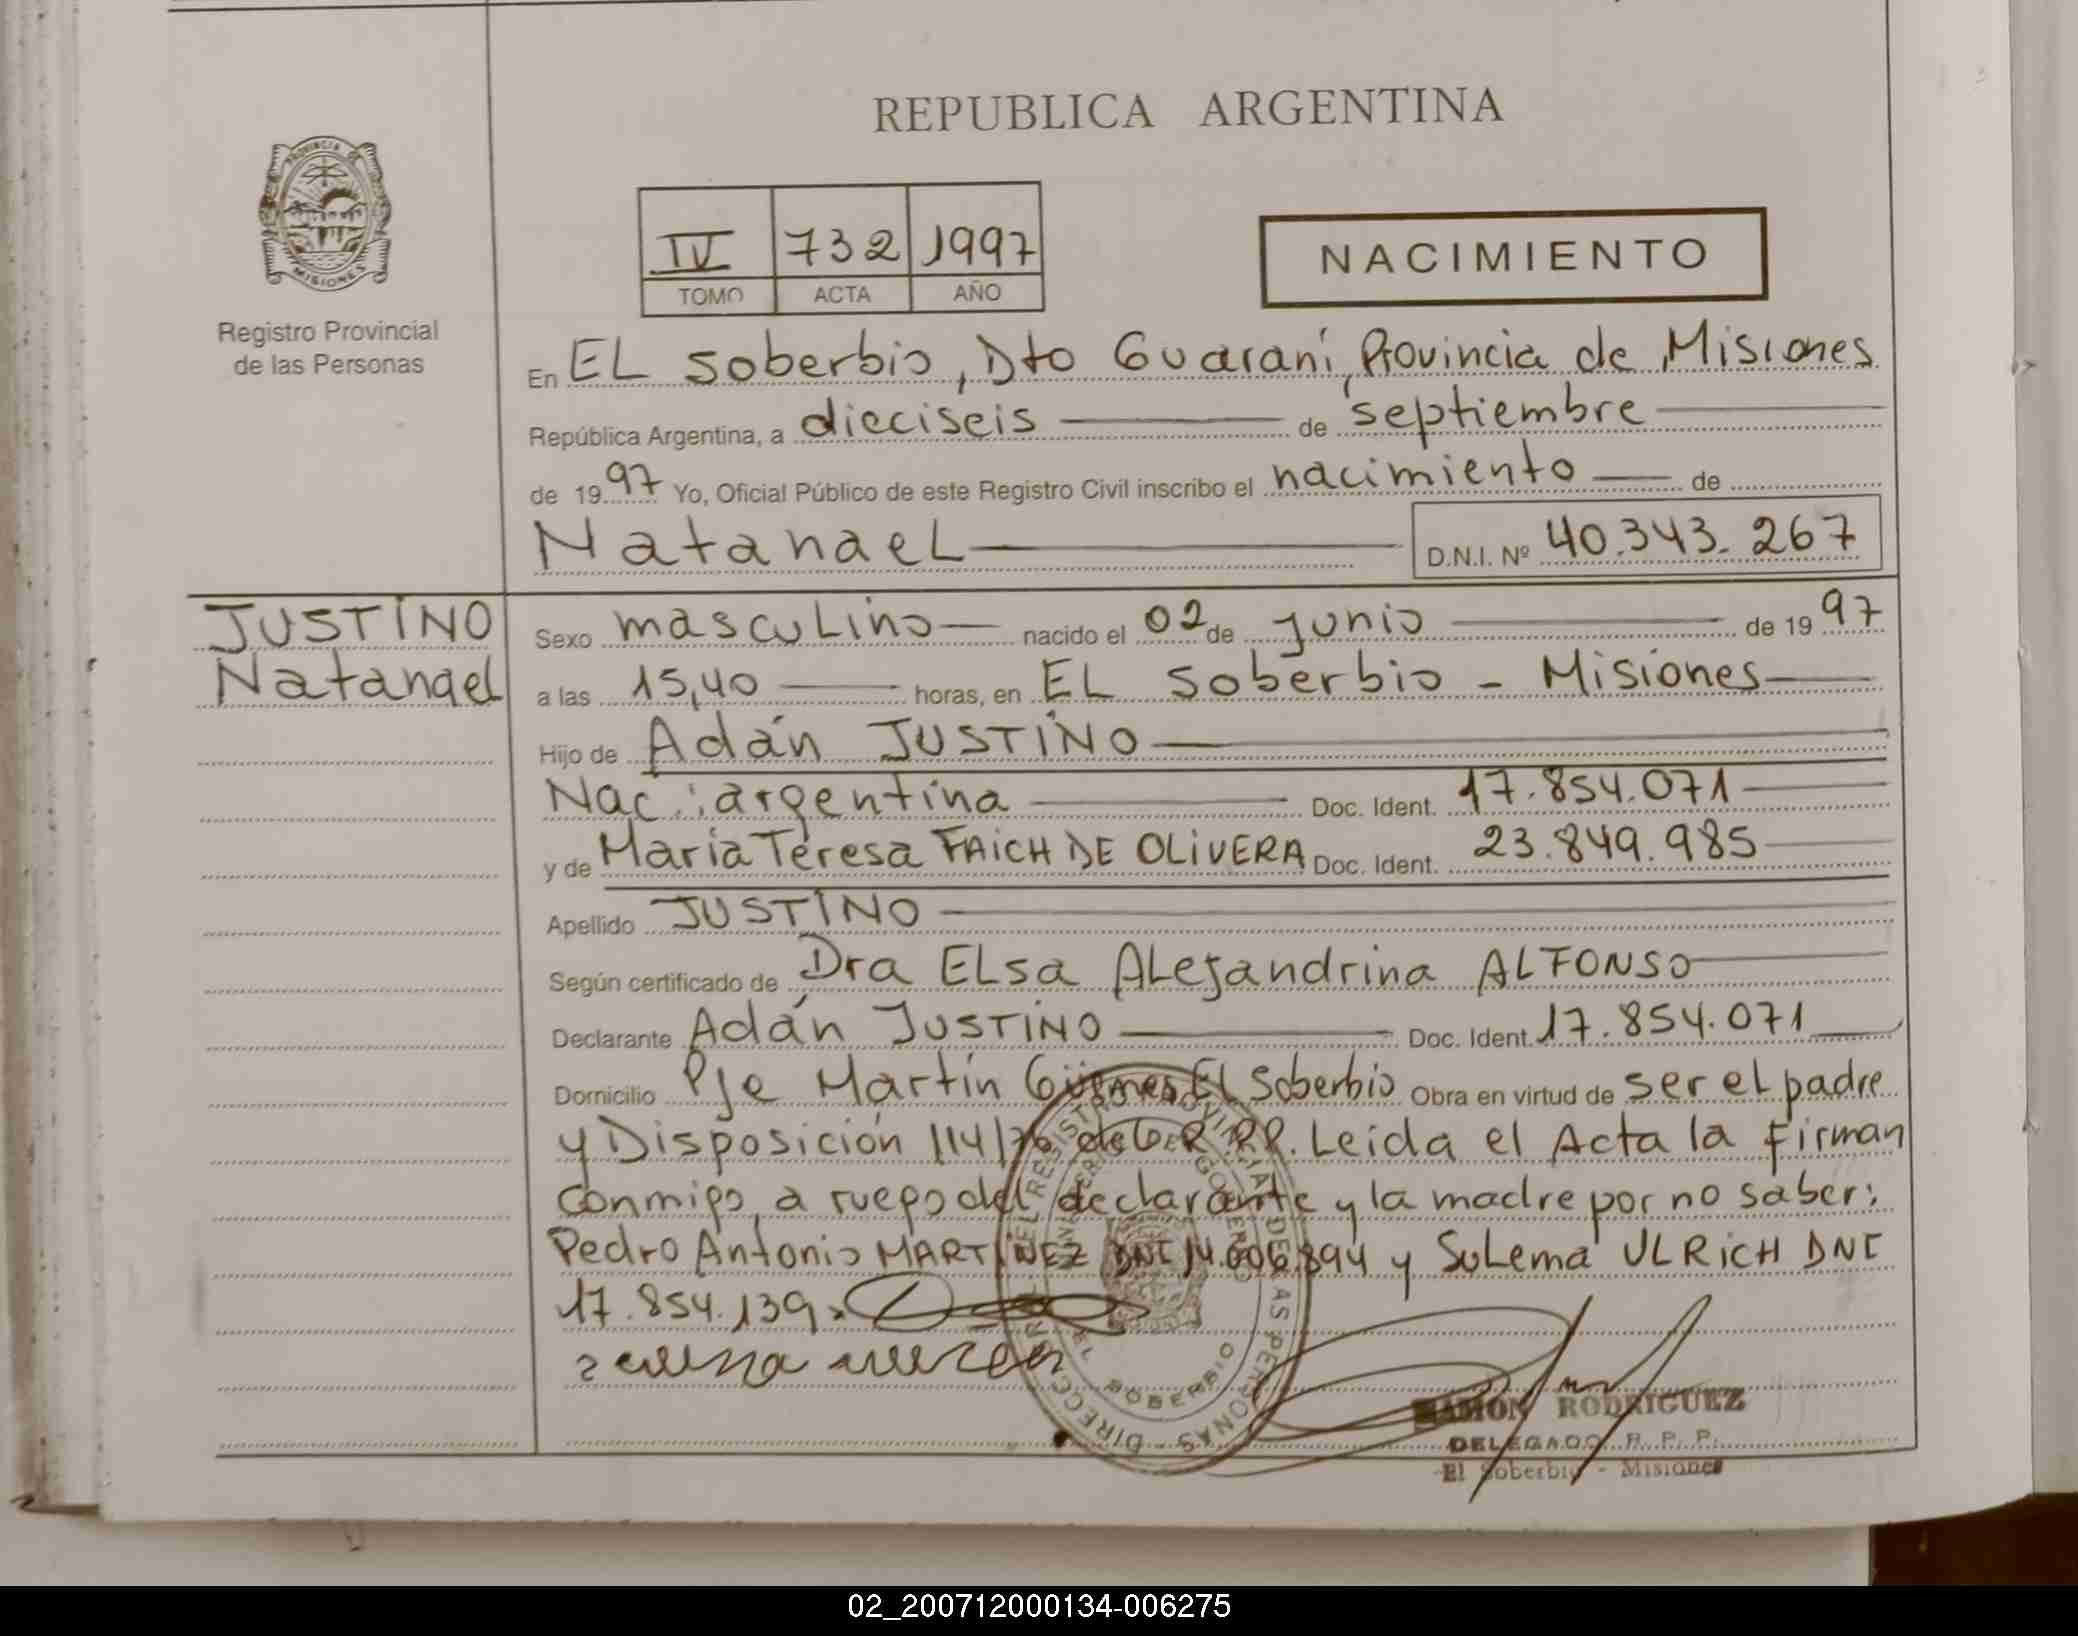 REPUBLICA ARGENTINA
PROVINCIA DE MISIONES
Registro Provincial
de las Personas
IV 732 1997
TOMO ACTA AÑO
NACIMIENTO
En EL Soberbio, Dto Guaraní, Provincia de Misiones
República Argentina, a dieciseis de septiembre
de 1997 Yo, Oficial Público de este Registro Civil inscribo el nacimiento de
Natanael D.N.I. Nº 40.343.267
JUSTINO
Natanael
Sexo masculino nacido el 02 de junio de 1997
a las 15,40 horas, en EL Soberbio - Misiones
Hijo de Adán JUSTINO
Nac.: argentina Doc. Ident. 17.854.071
y de María Teresa FAICH DE OLIVERA Doc. Ident. 23.849.985
Apellido JUSTINO
Según certificado de Dra ELsa ALejandrina ALFONSO
Declarante Adán JUSTINO Doc. Ident. 17.854.071
Domicilio Pje Martín Güemes, El Soberbio Obra en virtud de ser el padre
y Disposición 114/76 de D.R.P.P. Leida el Acta la firman
conmigo, a ruego del declarante y la madre por no saber:
Pedro Antonio MARTINEZ DNI 14.006.894 y SuLema ULRICH DNI
17.854.139.
DIRECC. GRAL. DEL REGISTRO PROVINCIAL DE LAS PERSONAS
EL SOBERBIO
RAMON RODRIGUEZ
DELEGADO R. P. P.
El Soberbio - Misiones
02_200712000134-006275